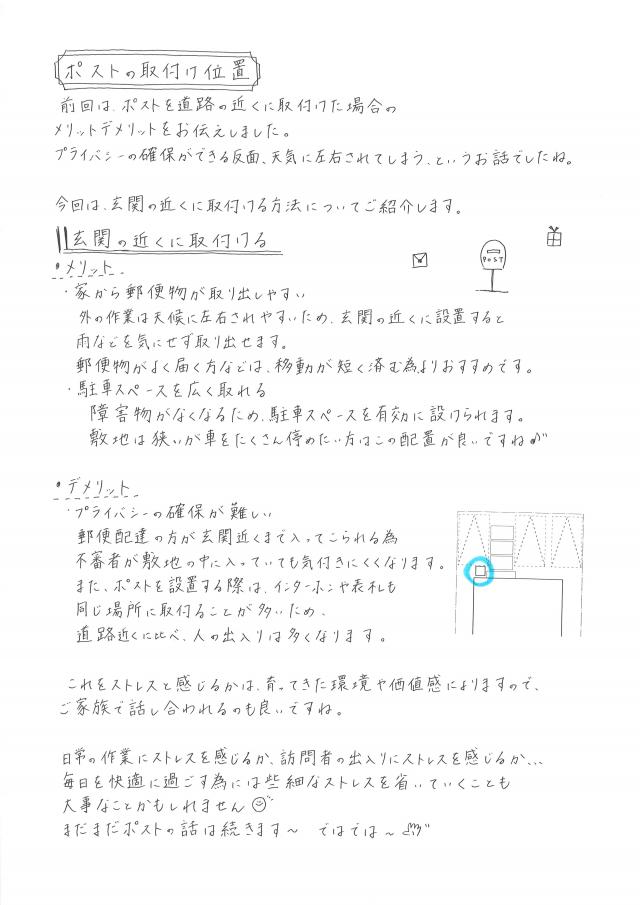 ポストの取付け位置
前回は、ポストを道路の近くに取付けた場合の
メリットデメリットをお伝えしました。
プライバシーの確保ができる反面、天気に左右されてしまう、というお話でしたね。
今回は、玄関の近くに取付ける方法についてご紹介します。
玄関の近くに取付ける
POST
・メリット
・家から郵便物が取り出しやすい
外の作業は天候に左右されやすいため、玄関の近くに設置すると
雨などを気にせず取り出せます。
郵便物がよく届く方などは、移動が短く済む為よりおすすめです。
・駐車スペースを広く取れる
障害物がなくなるため、駐車スペースを有効に設けられます。
敷地は狭いが車をたくさん停めたい方はこの配置が良いですね♪
・デメリット
・プライバシーの確保が難しい
郵便配達の方が玄関近くまで入ってこられる為
不審者が敷地の中に入っていても気付きにくくなります。
また、ポストを設置する際は、インターホンや表札も
同じ場所に取付ることが多いため、
道路近くに比べ、人の出入りは多くなります。
これをストレスと感じるかは、育ってきた環境や価値感によりますので、
ご家族で話し合われるのも良いですね。
日常の作業にストレスを感じるか、訪問者の出入りにストレスを感じるか…
毎日を快適に過ごす為には些細なストレスを省いていくことも
大事なことかもしれません
まだまだポストの話は続きます～ ではでは～